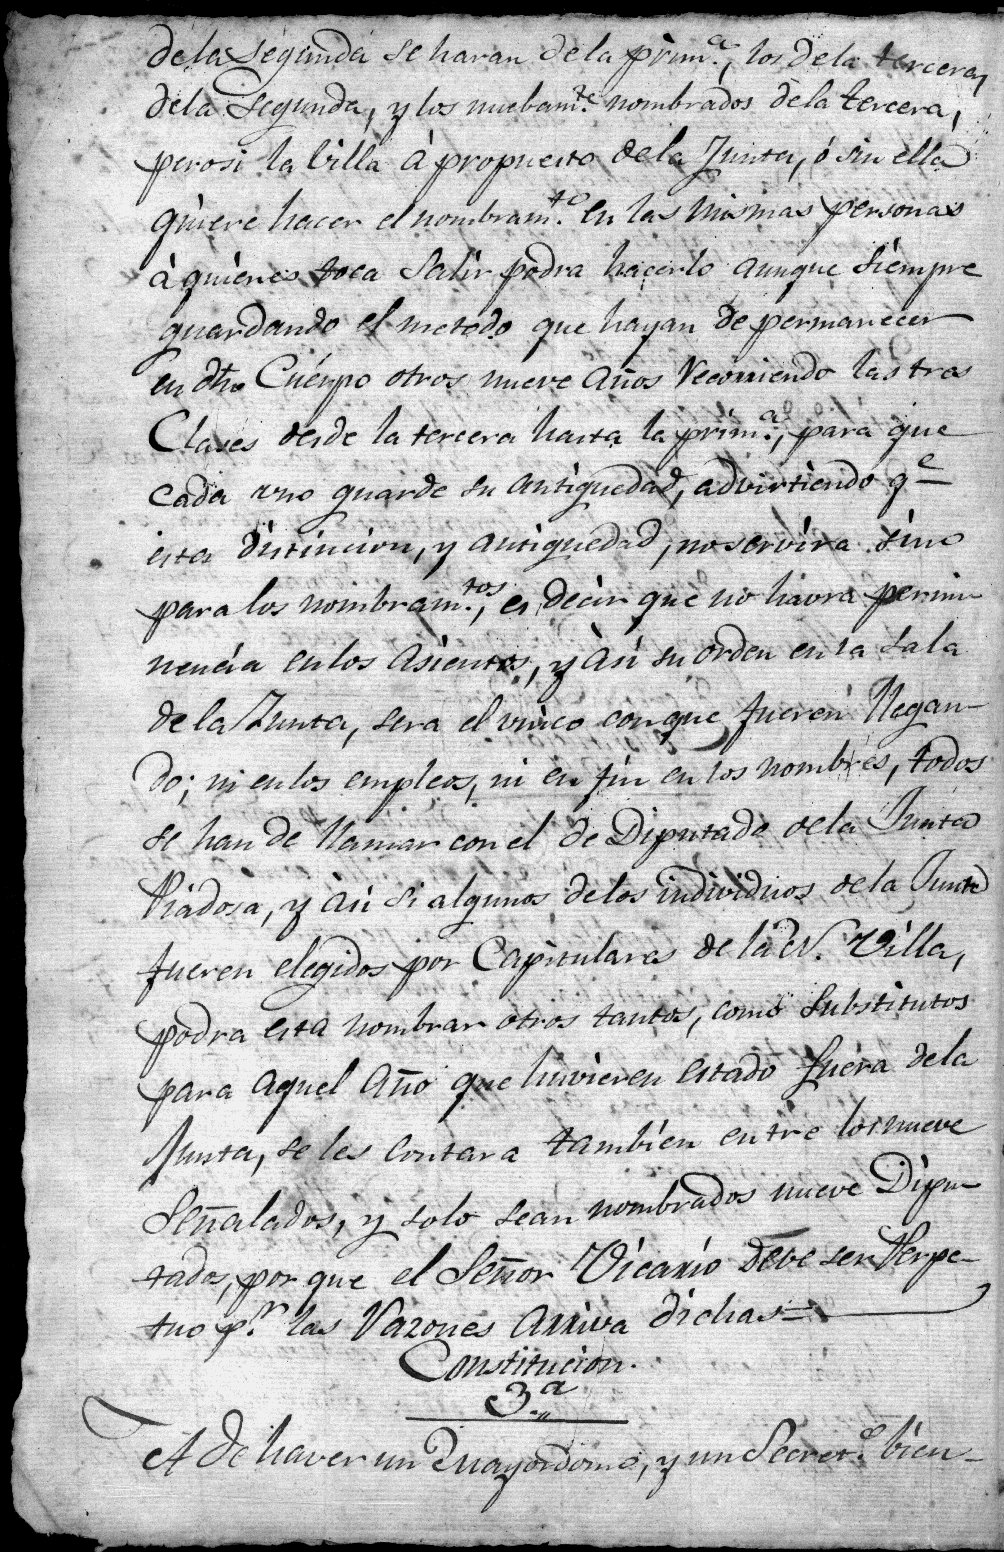 de la segunda se haran de la prim.ª, los de la tercera,
de la segunda, y los nuebam.te nombrados de la tercera,
pero si la villa à propuesta de la Junta, ó sin ella
quiere hacer el nombram.to en las mismas personas
à quienes toca salir podra hacerlo aunque siempre
guardando el metodo que hayan de permanecer
en dho Cuerpo otros nueve años recorriendo las tres
Clases desde la tercera hasta la prim.ª, para que
cada uno guarde su antiguedad, advirtiendo q.e
esta distincion, y antiguedad, no servira sino
para los nombram.tos, es decir que no havra permi-
nencia en los asientos, y asi su orden en la sala
de la Junta, sera el unico con que fueren llegan-
do; ni en los empleos, ni en fin en los nombres, todos
se han de llamar con el de Diputado de la Junta
Piadosa, y asi si algunos de los individuos de la Junta
fueren elegidos por Capitulares de la N. Villa,
podra esta nombrar otros tantos, como substitutos
para aquel año que huvieren estado fuera de la
Junta, se les contara tambien entre los nueve
señalados, y solo sean nombrados nueve Dipu-
tados, por que el Señor Vicario deve ser Perpe-
tuo p.r las razones arriva dichas=
Constitucion.
3.ª
A de haver un Mayordomo, y un Secret.º bien-